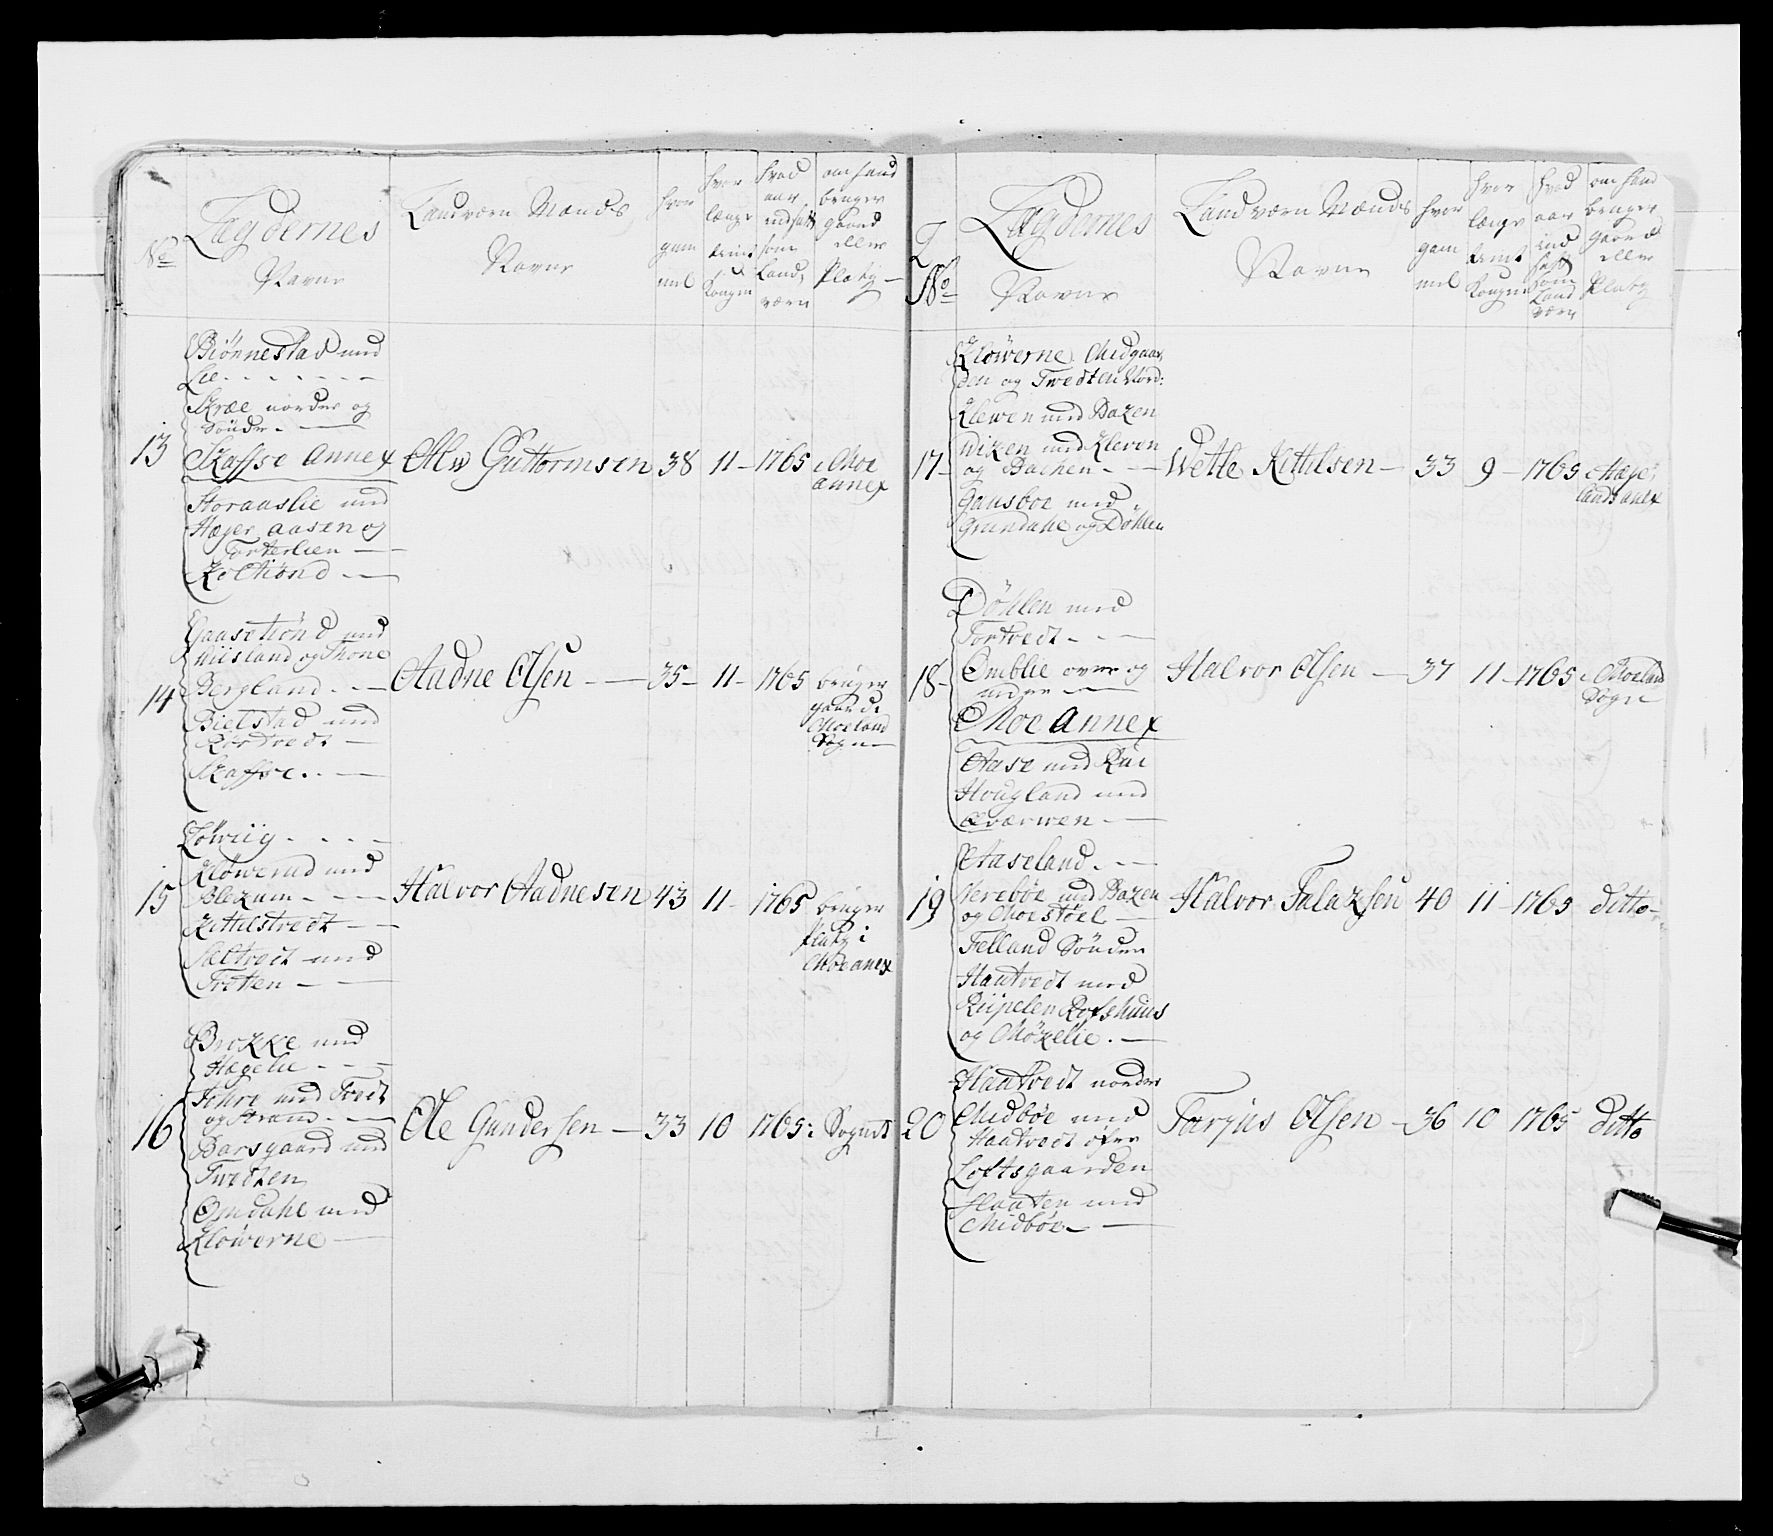 No
Lægdernes
Navne
Landværn Mænds
Navne
hvor
gam
mel
hvor
længe
tient
Kongen
hvad
aar
indsatt
som
Land
værn
om hand
bruger
gaard
eller
Platz
13
Biönnestad med
Lie
Skræe nordre og
Söndr
Skafse Annex
Storaaslie med
Hæger aasen og
Torterlien
Koltiönd
Alv Guttormsen 38 11 1765 Moe
annex
14
Gaasetiönd med
Niisland og Thone
Bergland
Bielstad med
Skafse
Aadne Olsen 35 11 1765 bruger
gaard i
Moeland
Sogn
15
Löwiig
Klöwerud med
Blexum
Kittilstvedt
Sæltvedt med
Tvetten
Halvor Aadnesen 43 11 1765 bruger
platz i
Moe anex
16
Brokke med
Hægelie
Fohre med Tvedt
og Strand
Barsgaard med
Twedten
Omdahl med
Klöwerne
Ole Gundersen 33 10 1765 i Sognet
No
Lægdernes
Navne
Landværn Mænds
Navne
hvor
gam
mel
hvor
længe
tient
Kongen
hvad
aar
ind
satt
som
Land
værn
om hand
bruger
gaard
eller
Platz
17
Klöwerne Midgaar
den og Twedten Nord:
Klewen med Bakken
Wiken med Kleven
og Bachen
Gaasboe med
Grundahl og Döhlen
Wetle Kittilsen 33 9 1765 Hæge
lands anex
18
Döhlen med
Tortvedt
Omblie over og
nedre
Moe Annex
Aase med Rui
Hougland med
Qværwen
Halvor Olsen 37 11 1765 i Moeland
Sogn
19
Aaseland
Nerebøe med Bakken
og Moestöel
Felland Söndre
Haatvedt med
Riipelen Rofshuus
og Mökelie
Halvor Talaksen 40 11 1765 ditto
20
Haatvedt nordre
Midböe med
Haatvedt öfre
Loftsgaarden
Slaaten med
Midböe
Tarjus Olsen 36 10 1765 ditto